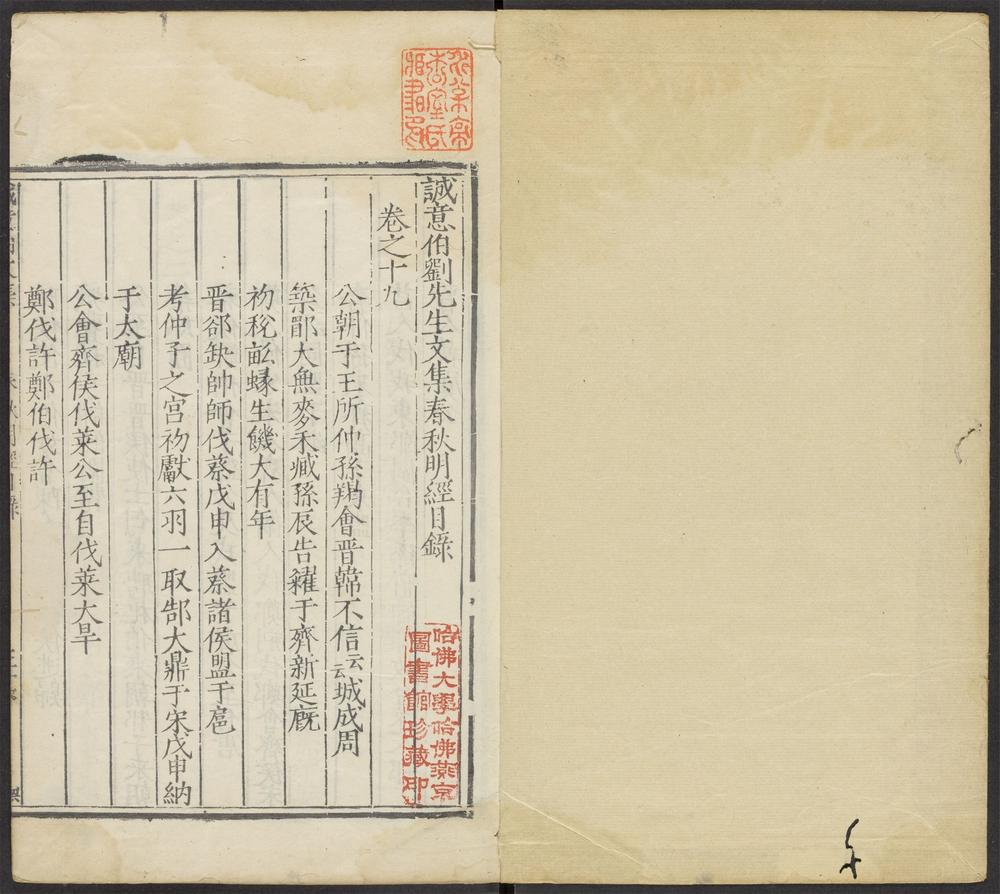 誠意伯劉先生文集春秋明經目錄
卷之十九
公朝于王所仲孫羯會晉韓不信云云城成周
築郿大無麥禾臧孫辰告糴于齊新延廐
初稅畝蝝生饑大有年
晉郤缺帥師伐蔡戊申入蔡諸侯盟于扈
考仲子之宮初獻六羽一取郜大鼎于宋戊申納
于太廟
公會齊侯伐萊公至自伐萊大旱
鄭伐許鄭伯伐許
哈佛大學哈佛燕京
圖書館珍藏印